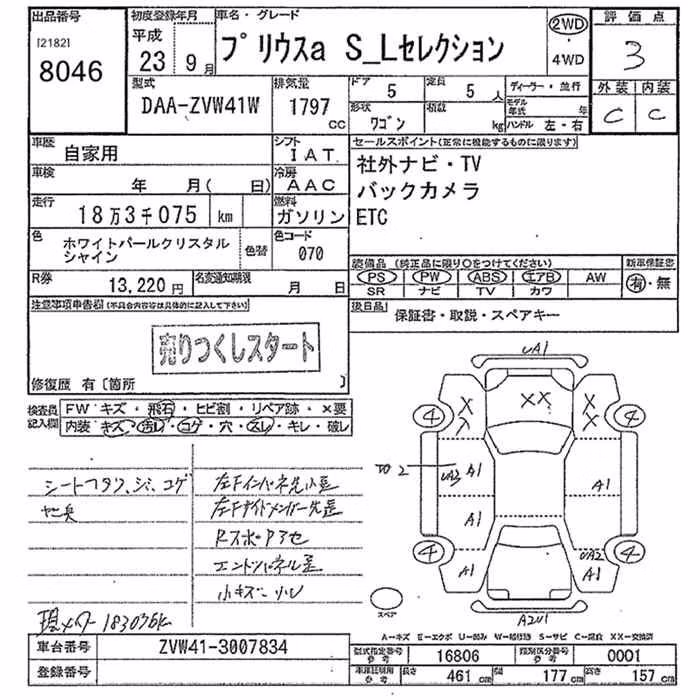 出品番号 [2182] 8046
初度登録年月 平成 23 年 9 月
車名・グレード プリウスa S_Lセレクション
2WD・4WD
評価点 3
外装 C 内装 C
型式 DAA-ZVW41W
排気量 1797 CC
ドア 5
定員 5 人
形状 ワゴン
積載 kg
ディーラー・並行
モデル年式 年
ハンドル 左・右
車歴 自家用
シフト IAT
車検 年 月( 日)
冷房 AAC
走行 18万3千075 km
燃料 ガソリン
色 ホワイトパールクリスタルシャイン
色替
色コード 070
R券 13,220 円
名変通知期限 月 日
セールスポイント(正常に機能するものに限ります)
社外ナビ・TV
バックカメラ
ETC
装備品 (純正品に限り○をつけてください)
PS PW ABS エアB AW
SR ナビ TV カワ
新車保証書 有・無
後日品 保証書・取説・スペアキー
注意事項申告欄(不具合内容等は具体的に記入して下さい)
売りつくしスタート
修復歴 有〔箇所 〕
検査員記入欄
FW キズ・飛石・ヒビ割・リペア跡・×要
内装 キズ・汚レ・コゲ・穴・スレ・キレ・破レ
現メーター 183076k
UA1
XX
X X
4 4
UA3 A1 A1
A1
4 UA2 4
A1 A1
スペア
A2U1
A-キズ E-エクボ U-凹み W-補修跡 S-サビ C-腐食 XX-交換済
車台番号 ZVW41-3007834
登録番号
型式指定番号 参考 16806
類別区分番号 参考 0001
車庫証明用 参考 長さ 461 cm 幅 177 cm 高さ 157 cm